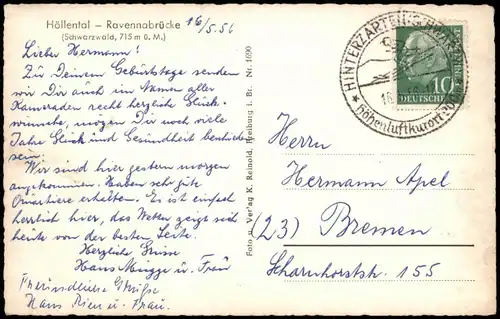 Höllental – Ravennabrücke
(Schwarzwald, 715 m ü. M.)
16/5.56
Lieber Hermann!
Zu Deinem Geburtstage senden
wir Dir auch im Namen aller
Kameraden recht herzliche Glück-
wünsche, mögen Dir noch viele
Jahre Glück und Gesundheit beschieden
sein.
Wir sind hier gestern morgen
angekommen. Haben sehr gute
Quartiere erhalten. Es ist einfach
herrlich hier, das Wetter zeigt sich
heute von der besten Seite.
Herzliche Grüsse
Hans Mugge u. Frau
Freundliche Grüße
Hans u. Frau.
Foto u. Verlag K. Reinold, Freiburg i. Br. Nr. 1090
HINTERZARTEN
Höhenluftkurort
10
DEUTSCHE
Herrn
Hermann Apel
(23) Bremen
Scharnhorststr. 155